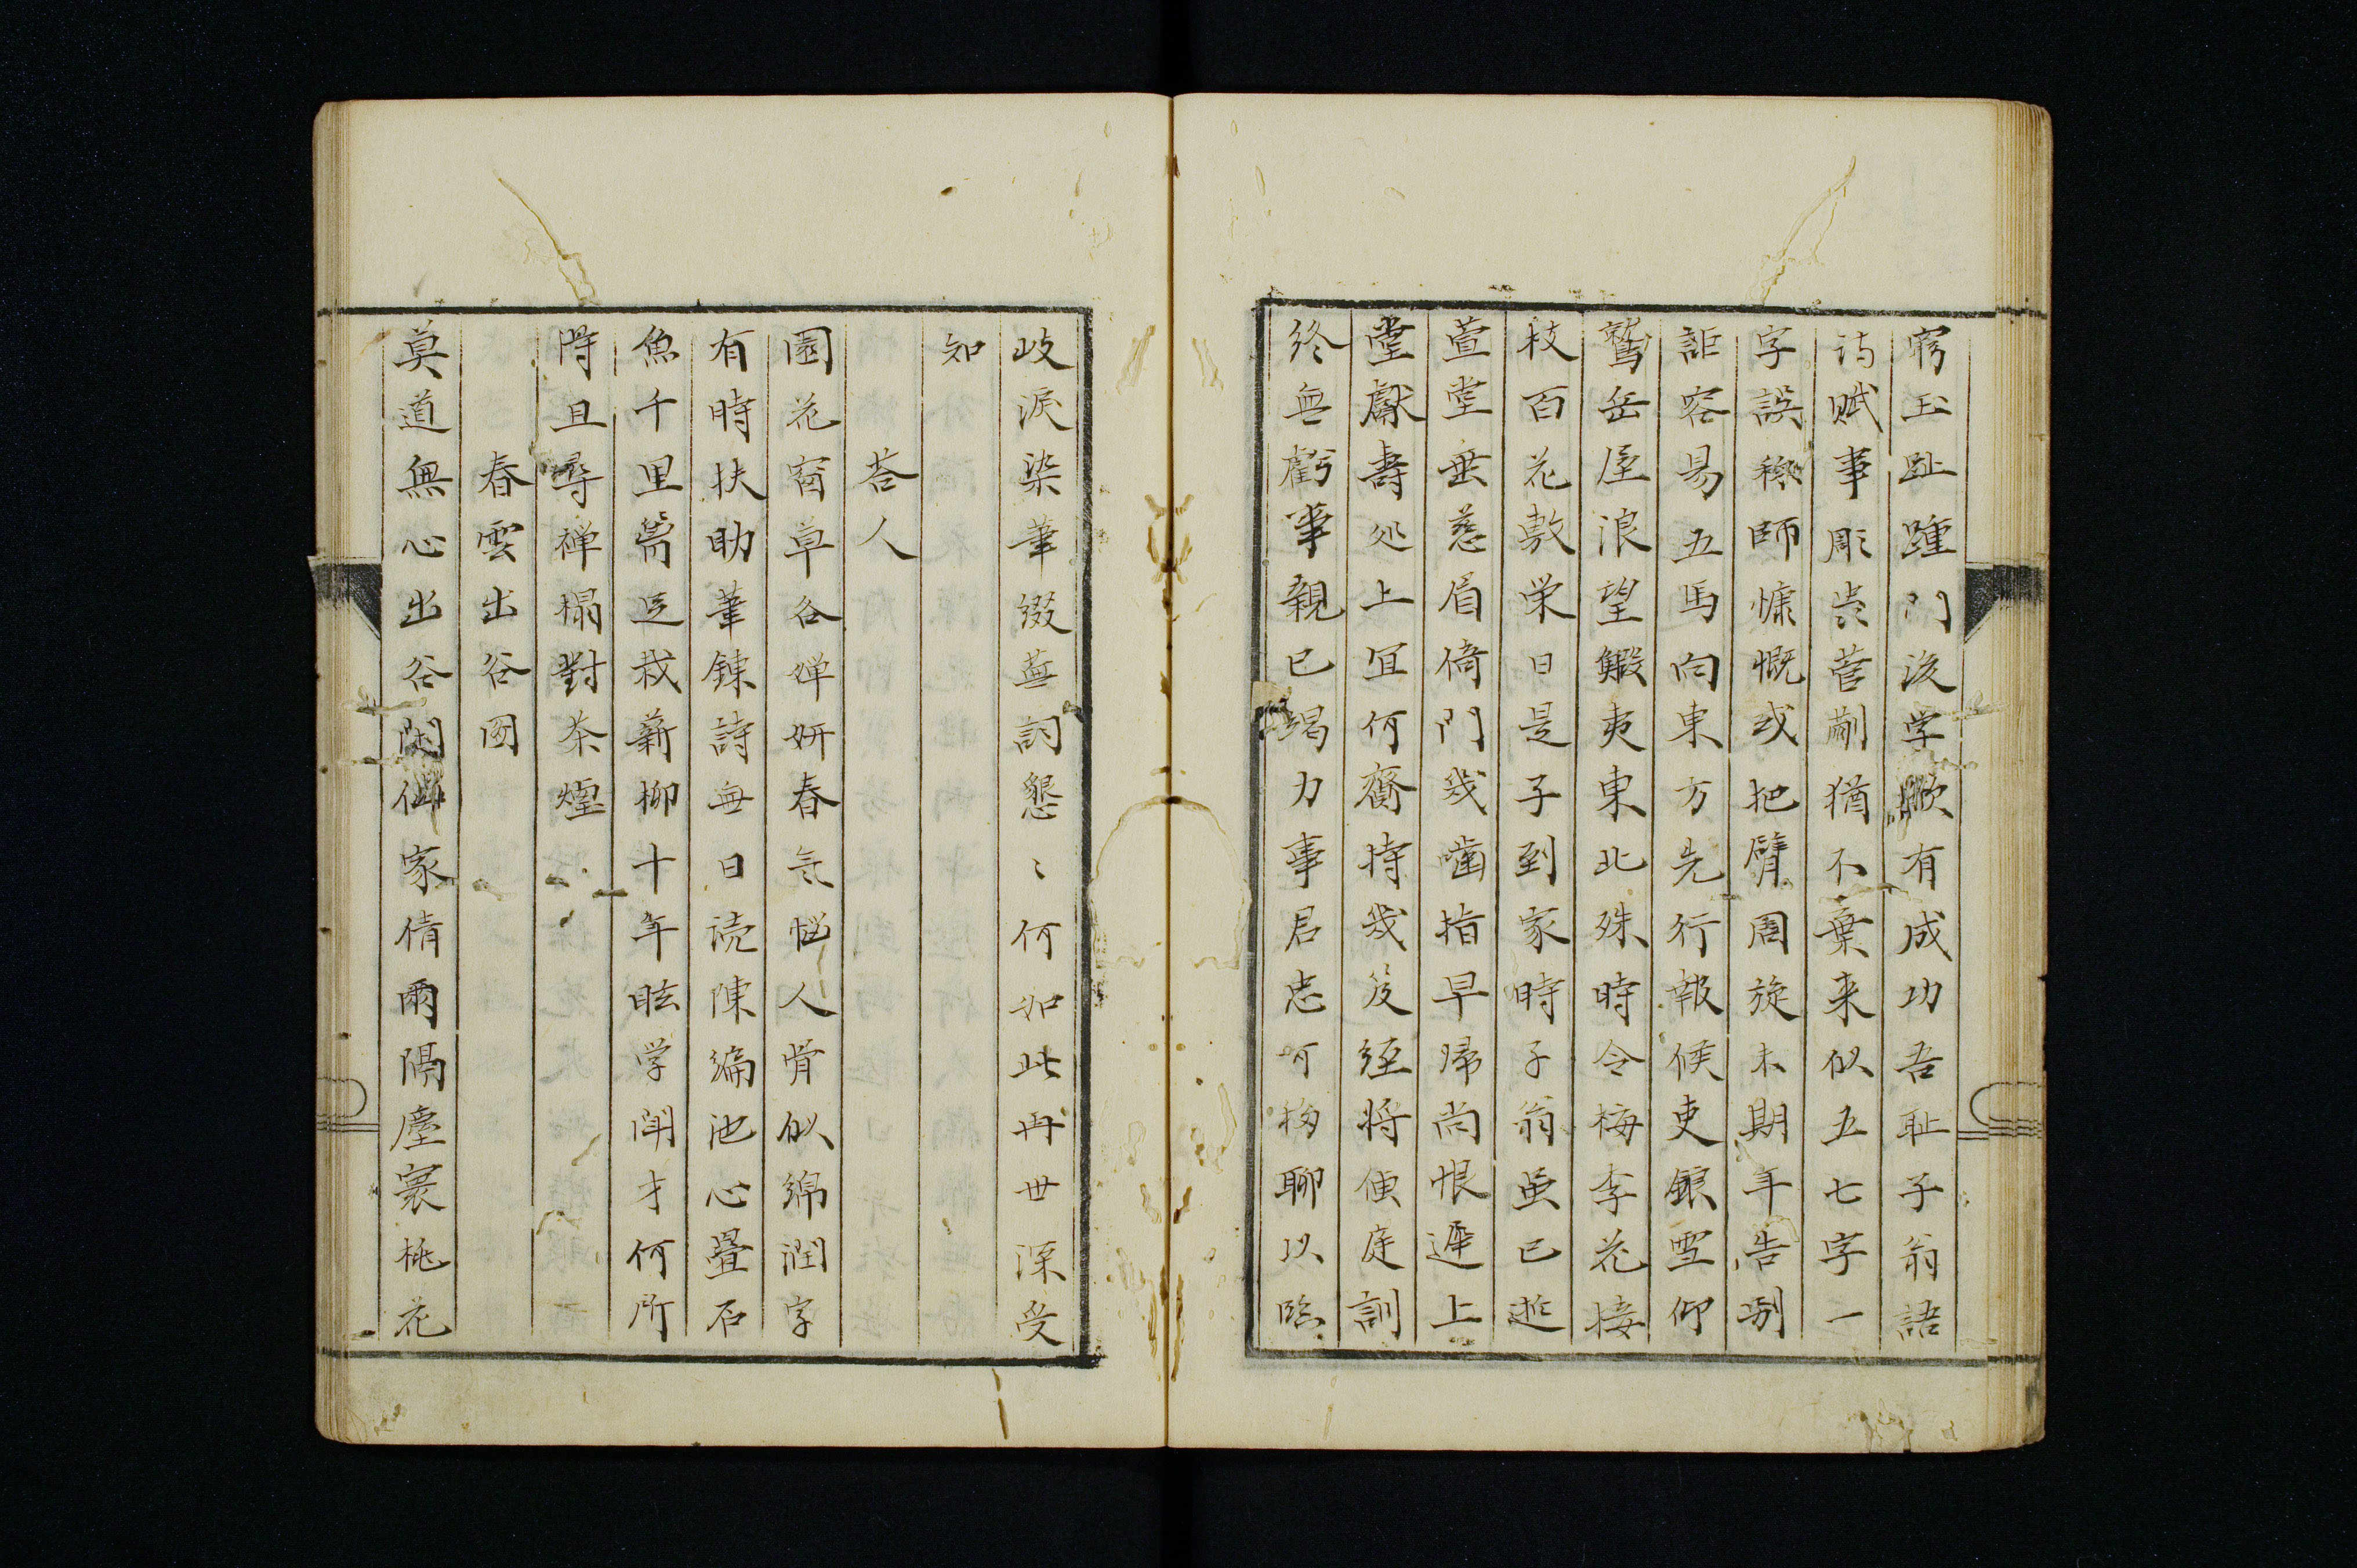 窮玉趾踵門汲学㵐有成功吾耻子翁語
詩賦事彫虫菅蒯猶不棄来似五七字一
字誤稱師慷慨或把臂周旋未期年告別
詎容易五馬向東方先行報候吏銀雪仰
鷲岳屋浪望鰕夷東北殊時令梅李花接
枝百花敷栄日是子到家時子翁虽已逝
萱堂垂慈眉倚門幾噛指早帰尚恨遅上
堂獻壽処上宜何齎持幾笈経将便庭訓
終無虧事親已竭力事君忠可移聊以臨
岐淚染筆綴蕪詞懇〻何如此再世深受
知
答人
園花窗草各嬋妍春気悩人骨似綿潤字
有時扶助筆錬詩無日読陳編池心畳石
魚千里嶌辺栽薪柳十年眩学聞才何所
得且尋禅榻對茶煙
春雲出谷図
莫道無心出谷閑仙家倩爾隔塵寰桃花